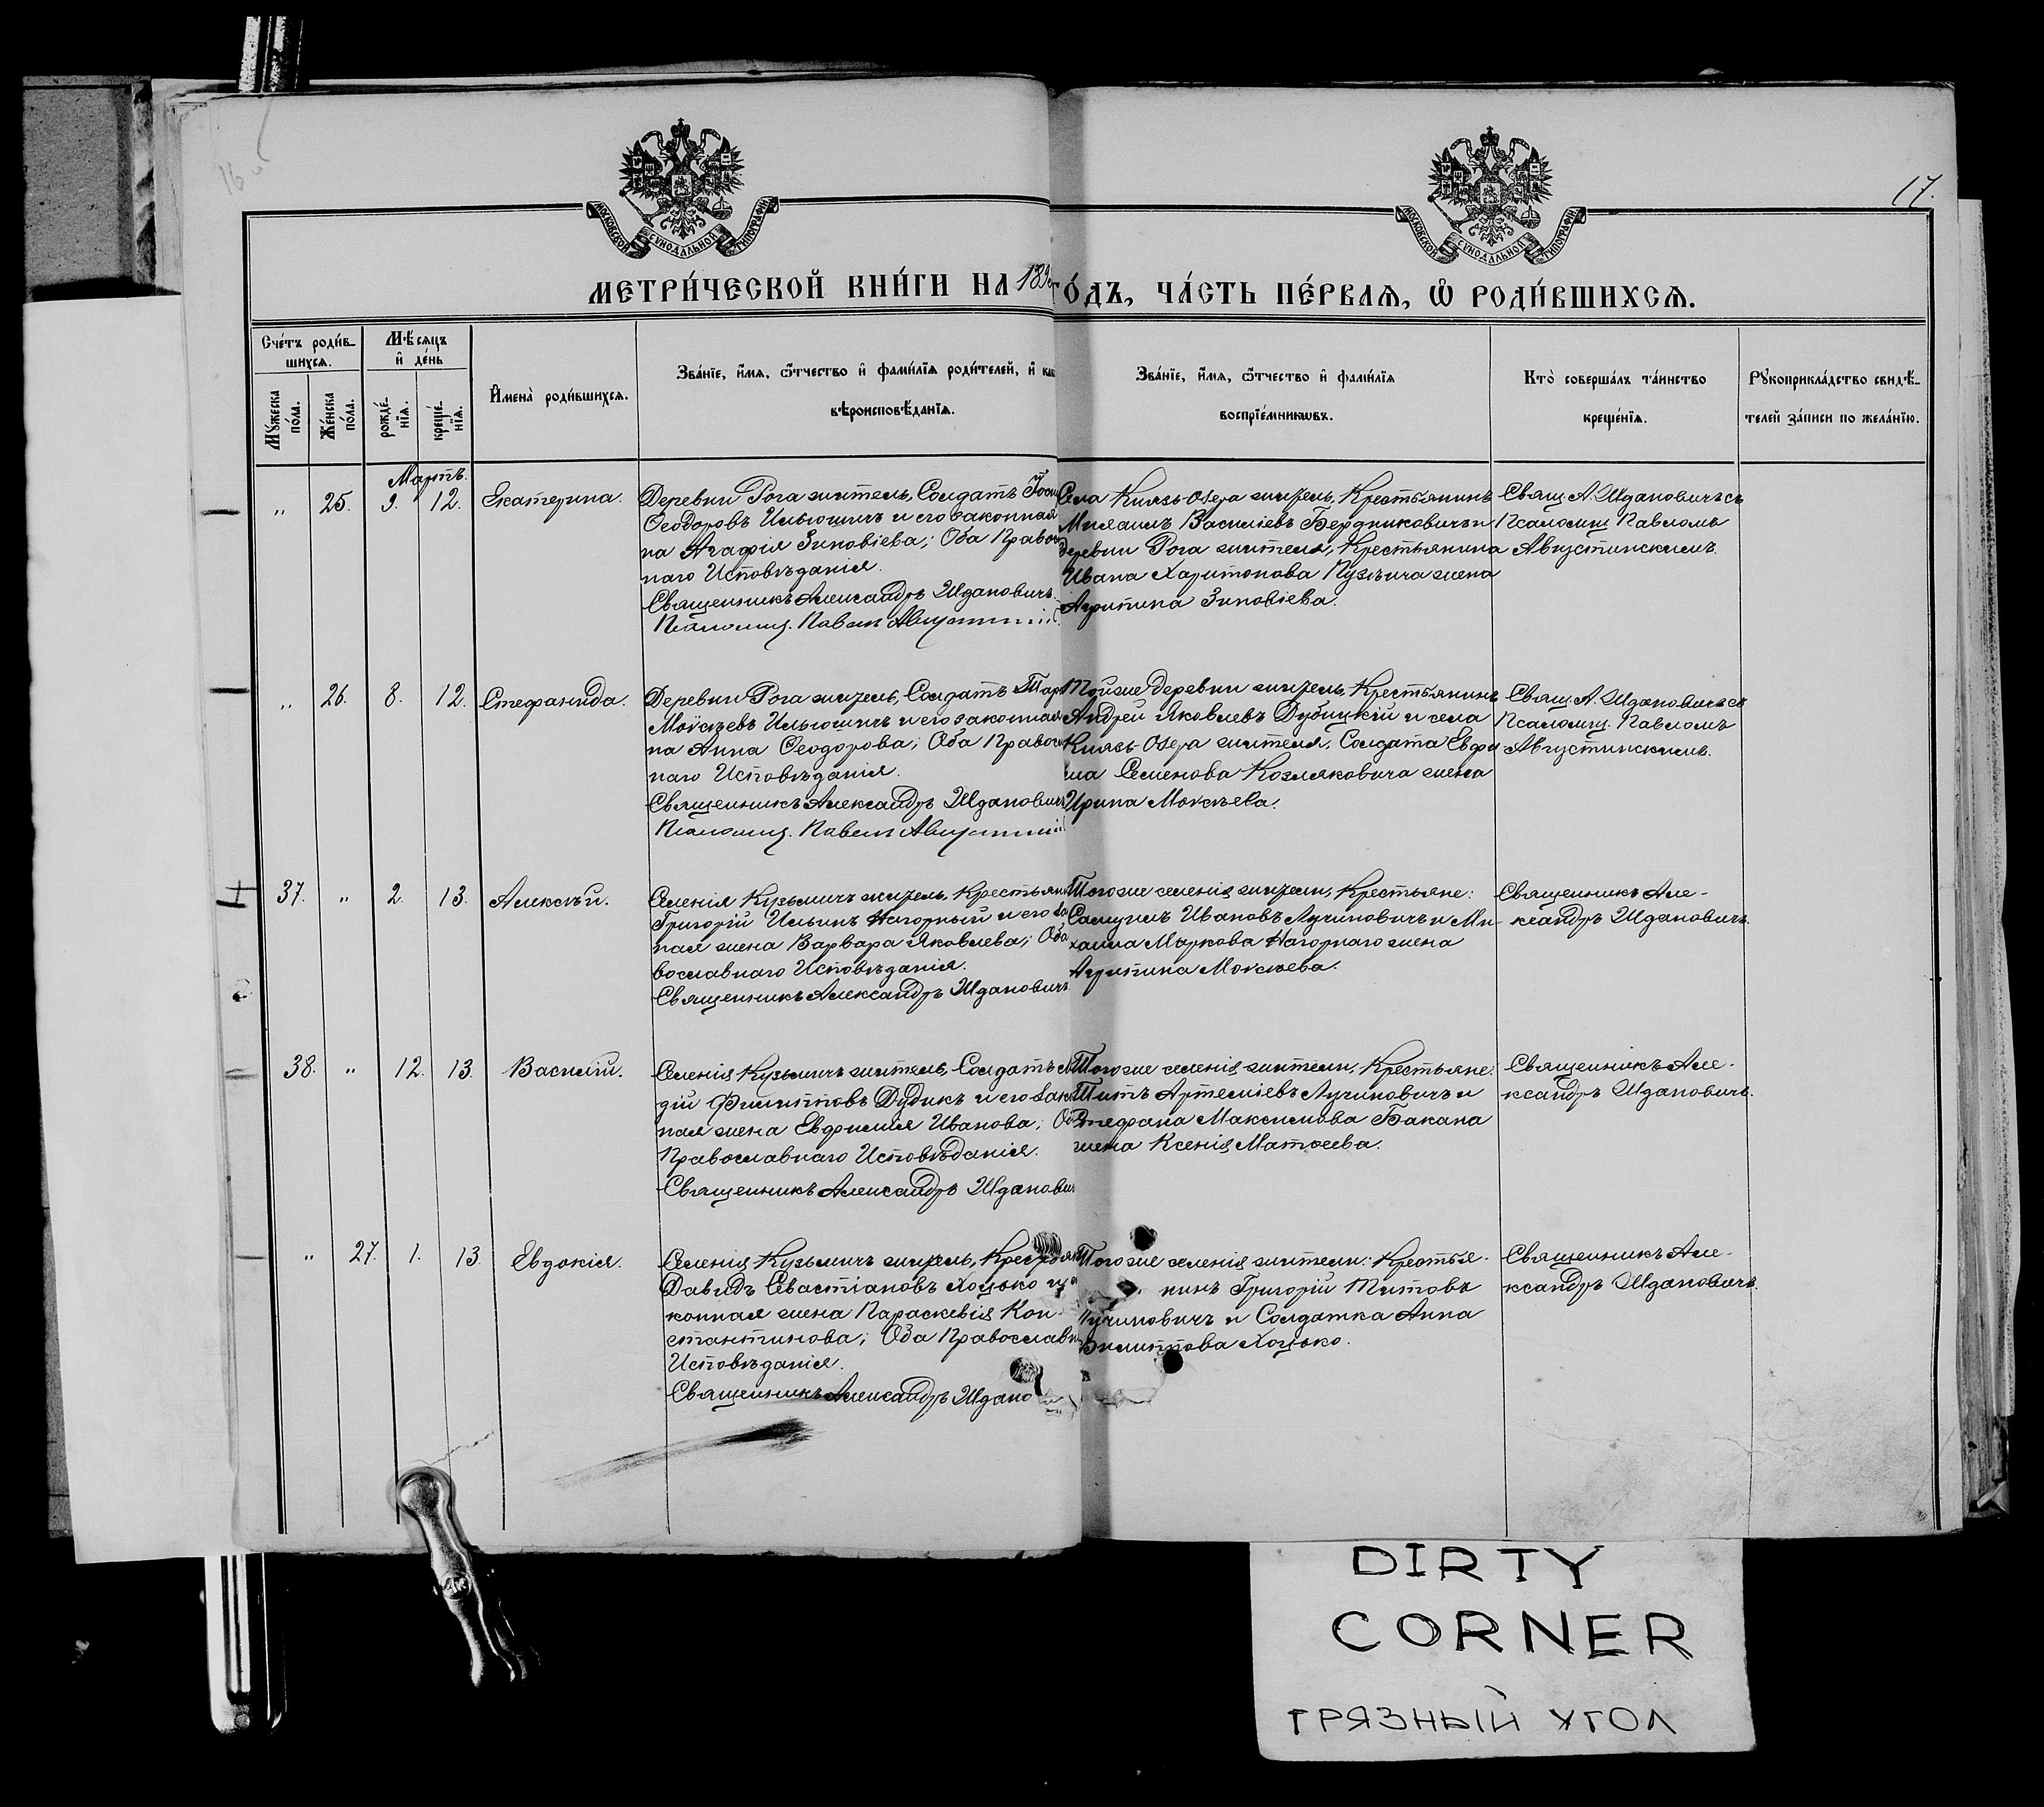 17.
МОСКОВСКОЙ СУНОДАЛЬНОЙ ТИПОГРАФІИ
МОСКОВСКОЙ СУНОДАЛЬНОЙ ТИПОГРАФІИ
МЕТРИ́ЧЕСКОЙ КНИ́ГИ НА 189
ГО́ДЪ, ЧА́СТЬ ПЕ́РВАѦ, Ѡ РОДИ́ВШИХСѦ.
Сче́тъ роди́в-
шихсѧ.
Мѣ́сяцъ
и҆ де́нь
Мꙋ́жеска по́ла.
Же́нска по́ла.
рожде́-
нїѧ.
креще́-
нїѧ.
И҆мена̀ роди́вшихсѧ.
Зва́нїе, и҆́мѧ, ѻ҆́тчество и҆ фами́лїѧ роди́телей, и҆
вѣроисповѣ́данїѧ.
Зва́нїе, и҆́мѧ, ѻ҆́тчество и҆ фами́лїѧ
воспрїе́мникѡвъ.
Кто̀ соверша́лъ та́инство
креще́нїѧ.
Рꙋкоприкла́дство свидѣ́-
телей за́писи по жела́нїю.
Мартъ.
„ 25. 9. 12. Екатерина.
Деревни Рога житель, Солдатъ
Ѳеодоровъ Ильюшичъ и его законная
на Агафія Зиновіева; Оба Право
наго Исповѣданія.
Священникъ Александръ Ждановичъ.
Псаломщ. Павелъ
Села Князь-Озера житель, Крестьянинъ
Михаилъ Василіевъ Бердниковичъ и
деревни Рога жителя, Крестьянина
Ивана Харитонова Пузевича жена
Агрипина Зиновіева.
Свящ. А. Ждановичъ съ
Псаломщ. Павломъ
Августинскимъ.
„ 26. 8. 12. Стефанида.
Деревни Рога житель, Солдатъ
Моѵсеевъ Ильюшичъ и его законная
на Анна Ѳеодорова; Оба Право
наго Исповѣданія.
Священникъ Александръ Ждановичъ
Псаломщ. Павелъ
Тойже деревни житель, Крестьянинъ
Андрей Яковлевъ Дубицкій и села
Князь-Озера жителя, Солдата Евфи
ма Семенова Козляковича жена
Ирина Моѵсеева.
Свящ. А. Ждановичъ съ
Псаломщ. Павломъ
Августинскимъ.
37. „ 2. 13. Алексѣй.
Селенія Кузьмичъ житель, Крестьян
Григорій Ильинъ Нагорный и его за
ная жена Варвара Яковлева; Оба
вославнаго Исповѣданія.
Священникъ Александръ Ждановичъ
Тогоже селенія жители, Крестьяне:
Самуилъ Ивановъ Лучиновичъ и Ми-
хаила Маркова Нагорнаго жена
Агрипина Моѵсеева.
Священникъ Але-
ксандръ Ждановичъ.
38. „ 12. 13. Василій.
Селенія Кузьмичъ житель, Солдатъ
дій Филипповъ Дудикъ и его зак
ная жена Евфимія Иванова; Оба
Православнаго Исповѣданія.
Священникъ Александръ Жданович
Тогоже селенія жители, Крестьяне:
Титъ Артеміевъ Лучиновичъ и
Стефана Максимова Бакана
жена Ксенія Матѳеева.
Священникъ Але-
ксандръ Ждановичъ.
„ 27. 1. 13. Евдокія.
Селенія Кузьмичъ житель, Крестьян
Давидъ Севастіановъ Хоцько и
конная жена Параскевія Кон-
стантинова; Оба Православн
Исповѣданія.
Священникъ Александръ Ждано
Тогоже селенія жители: Крестья-
нинъ Григорій Титовъ
Лучиновичъ и Солдатка Анна
Филиппова Хоцько.
Священникъ Але-
ксандръ Ждановичъ.
DIRTY
CORNER
ГРЯЗНЫЙ УГОЛ